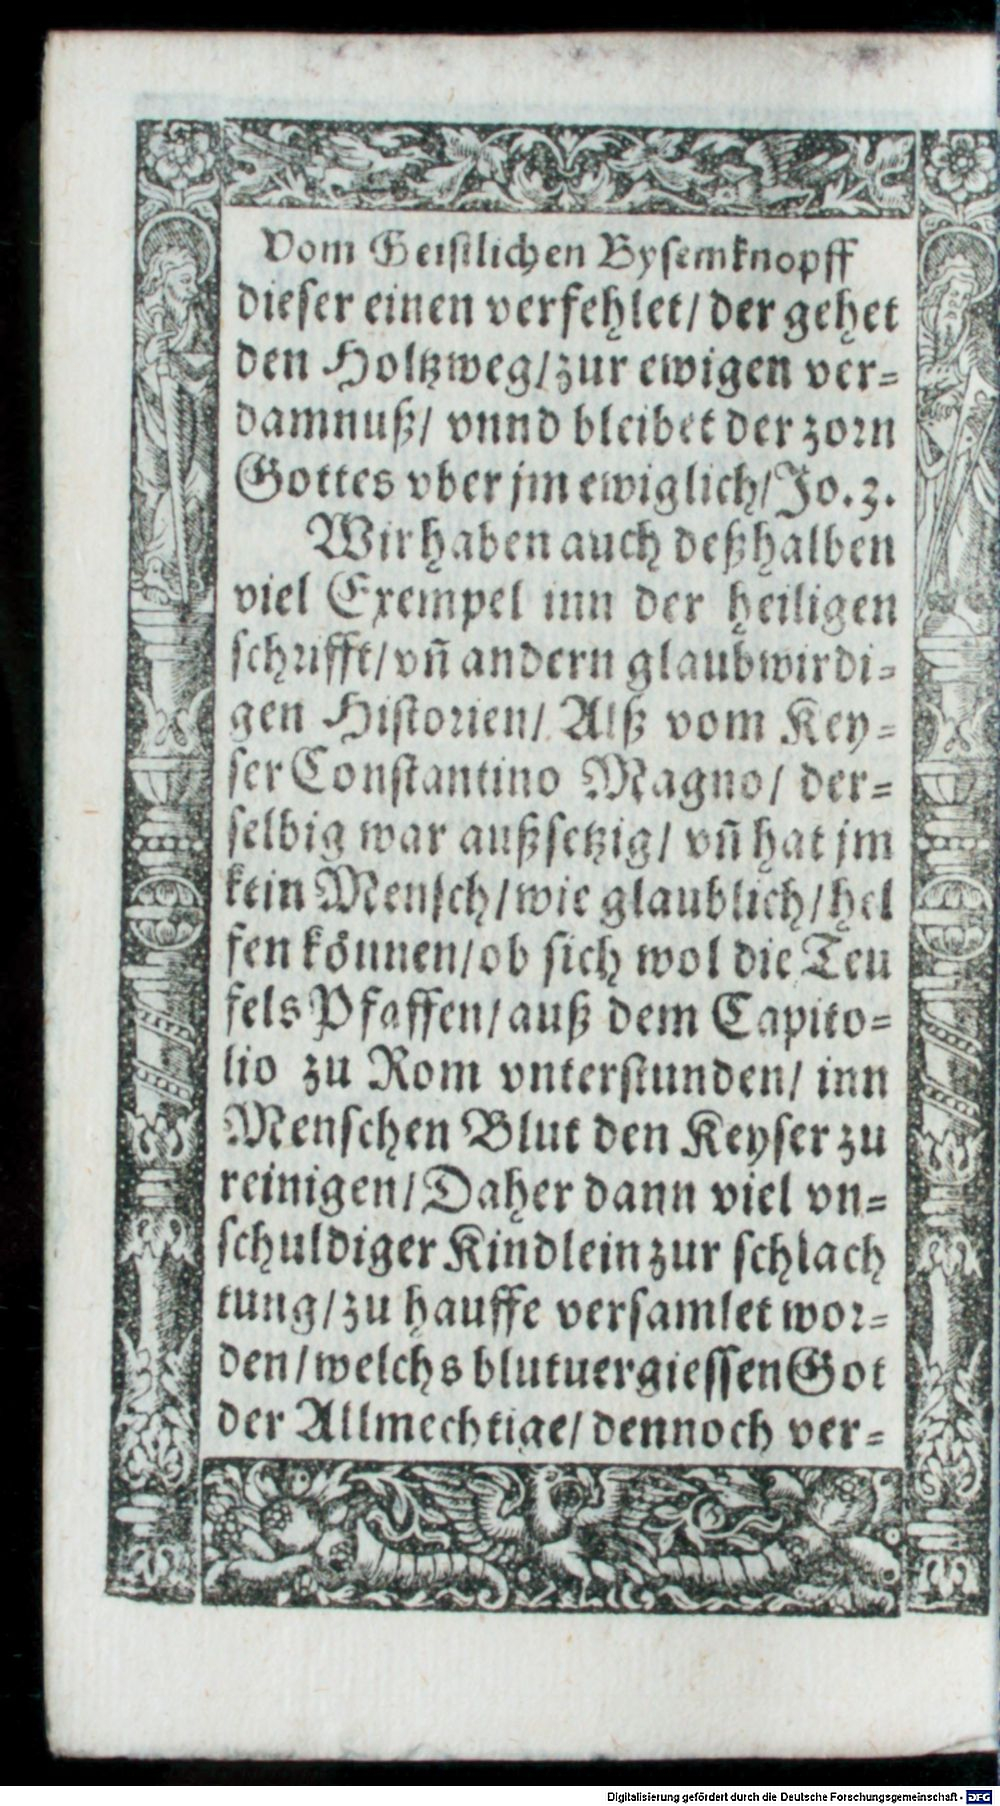 Vom Geistlichen Bysemknopff
dieser einen verfehlet/ der gehet
den Holtzweg/ zur ewigen ver=
damnuß/ vnnd bleibet der zorn
Gottes vber jm ewiglich/ Jo. 3.
Wir haben auch deßhalben
viel Exempel inn der heiligen
schrifft/ vñ andern glaubwirdi=
gen Historien/ Alß vom Key=
ser Constantino Magno/ der=
selbig war außsetzig/ vñ hat jm
kein Mensch/ wie glaublich/ hel
fen können/ ob sich wol die Teu
fels Pfaffen/ auß dem Capito=
lio zu Rom vnterstunden/ inn
Menschen Blut den Keyser zu
reinigen/ Daher dann viel vn=
schuldiger Kindlein zur schlach
tung/ zu hauffe versamlet wor=
den/ welchs blutuergiessen Got
der Allmechtige/ dennoch ver=
Digitalisierung gefördert durch die Deutsche Forschungsgemeinschaft - DFG